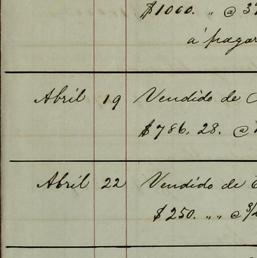 $1060. „ @
á pagar
Abril 19 Vendido de
$786. 28. @
Abril 22 Vendido de
$250. „ „ @ 3/